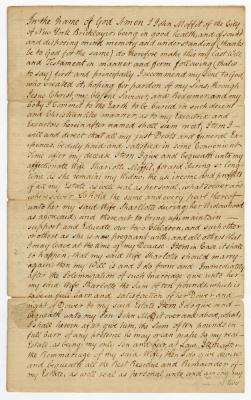 In the Name of God Amen I John Moffit of the City
of New York Bricklayer being in good health and of sound
and disposing mind memory and understanding (thanks
be to God for the same) do therefore make this my last Will
and Testament in manner and form following (that is
to say) first and principally I recommend my Soul to God
who created it, hoping for pardon of my Sins through
Jesus Christ my blessed Saviour and Redeemer and my
Body I Commit to the Earth to be buried in such decent
and Christian like manner, as to my Executrix and
Executors herein after named shall seem meet, Item I
will and direct that all my just Debts and funeral Ex-
pences be duly paid and satisfied in some Convenient
Time after my decease Item I give and bequeath unto my
affectionate Wife Charlotte Moffit, for and during so long
time as she remains my Widow, the use income and profits
of all my Estate as well real as personal, whatsoever and
wheresoever To hold the same and every part thereof
unto her my said Wife Charlotte during her Widowhood
as aforesaid, and thereout to bring up maintain
support and Educate our two Children, and such other
or others as she is now pregnant with, and all others that
I may have at the time of my Decease. Item in Case it should
so happen, that my said Wife Charlotte should marry
again then my Will is and I do from and Immediately
after the Solemnization of such Marriage give unto her
my said Wife Charlotte the Sum of ten pounds, which is
to be in full barr and Satisfaction of her Dower and
right of Dower to my said Estate Item I give and
bequeath unto my Son John Moffit over and above, what
I shall herein after give him, the Sum of ten pounds in
full barr of any pretence he may or can make to my real
Estate as being my only Son and heir at Law, Item after
the Remarriage of my said Wife, then I do give devise
and bequeath all the Rest Residue and Remainder of
my Estate, as well real as personal unto and among my
two